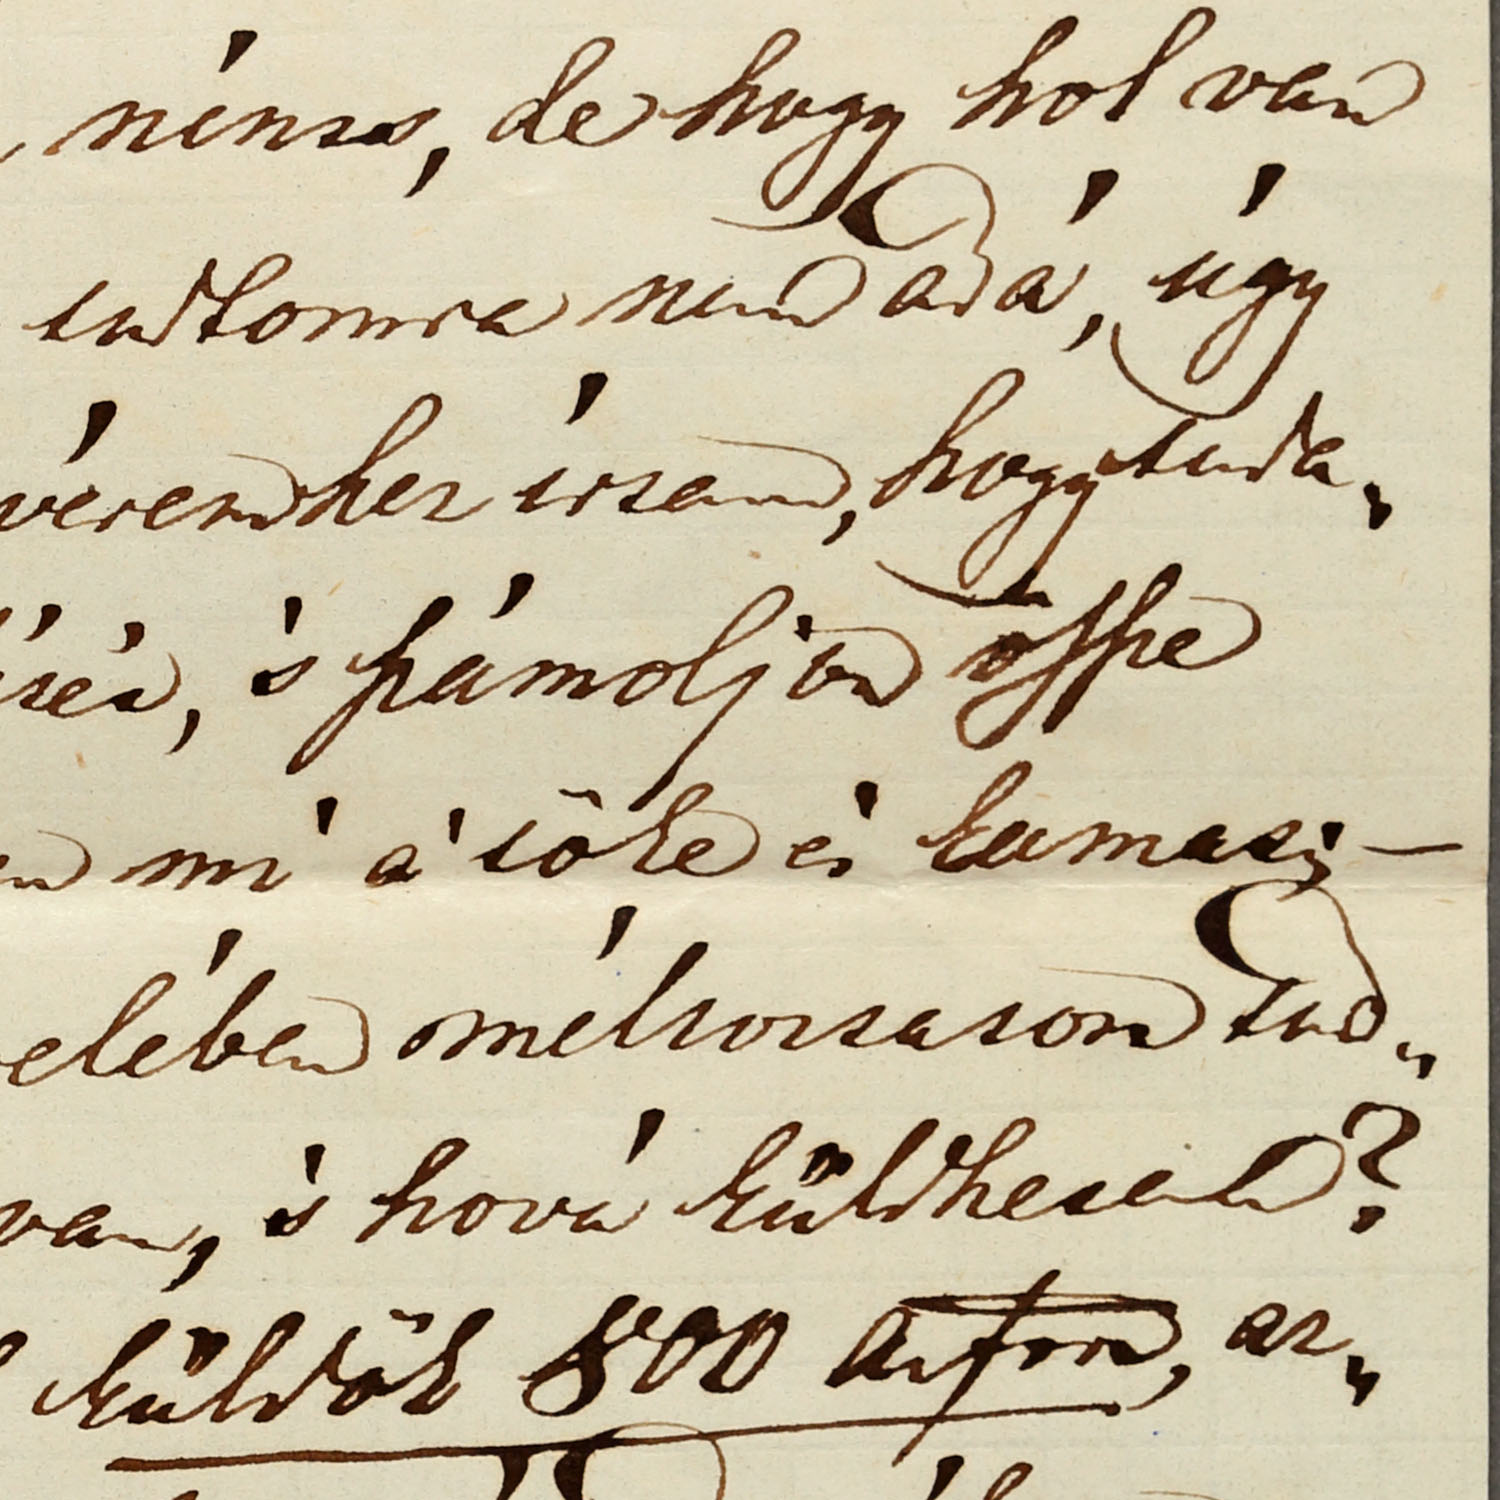 nincs, de hogy hol van
tudtomra nem adá, úgy
véremhez írtam, hogy tuda„
s számoljon össze
mi a' tőke és kamat;—
elében méltoztatson tud„
van, 's hová küldhetem?
küldök 800 afor, az„